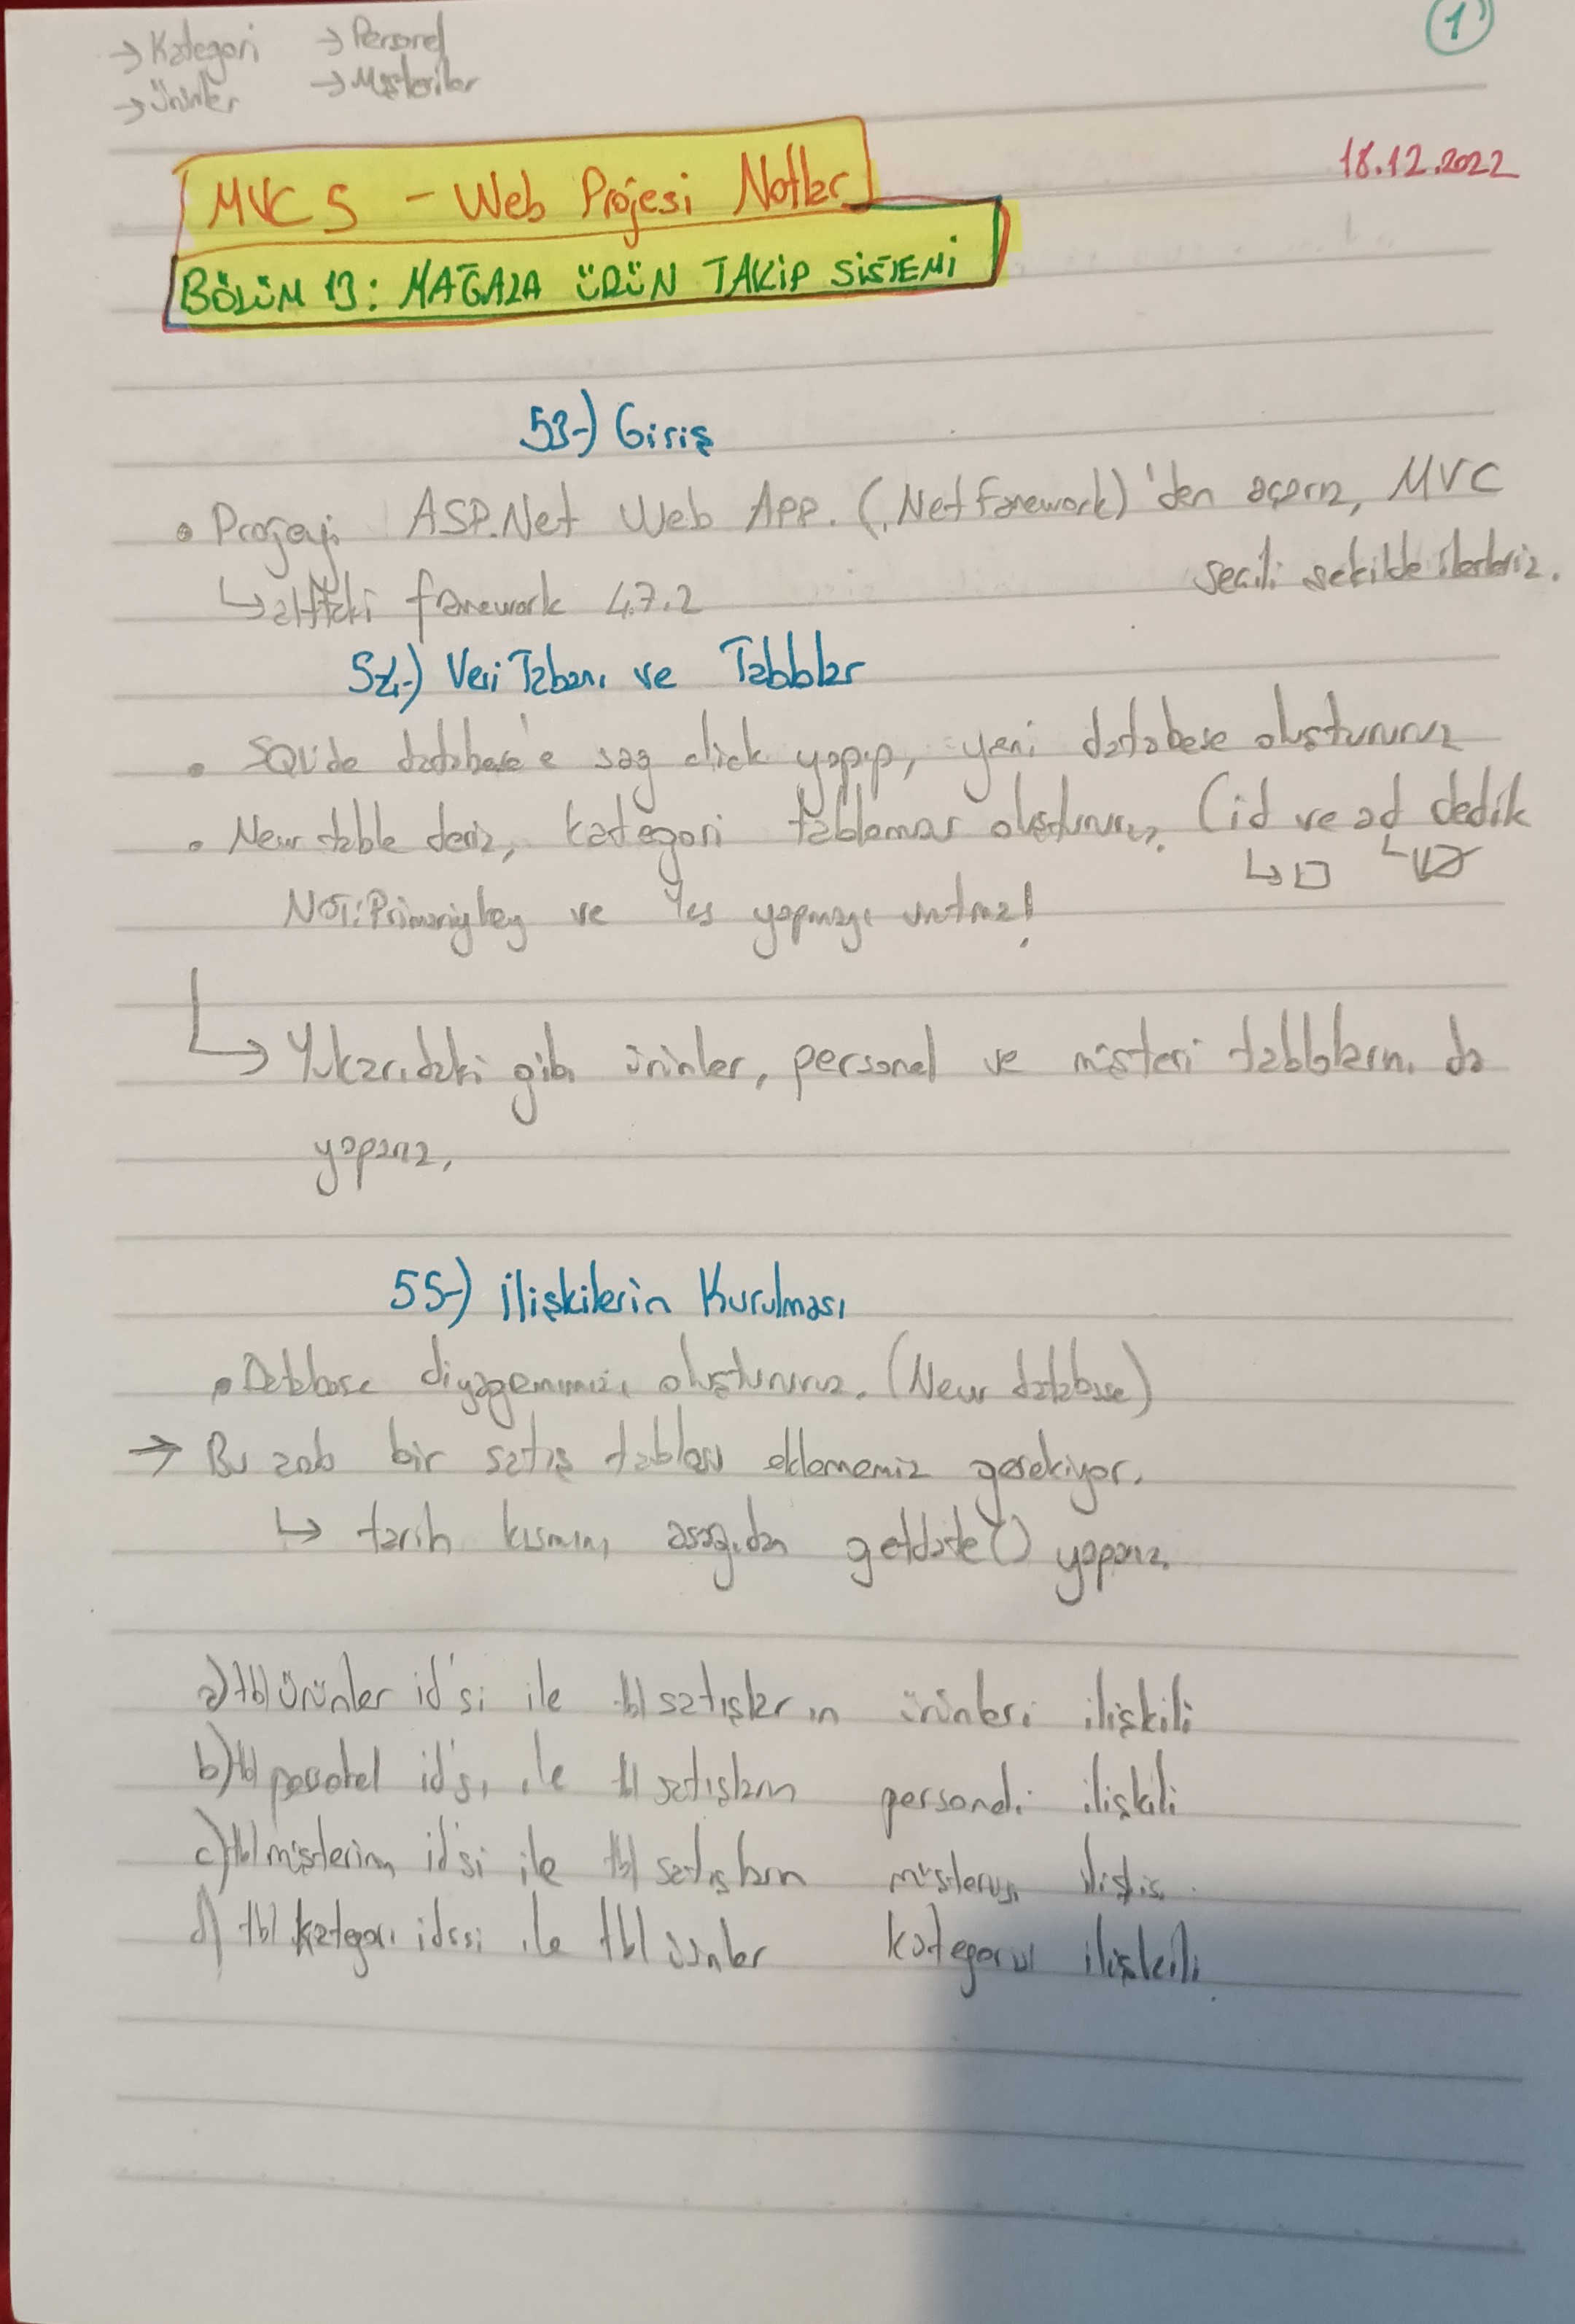 1
→ Kategori → Personel
→ Ürünler → Müşteriler
18.12.2022
MVC 5 - Web Projesi Notları
BÖLÜM 13: MAĞAZA ÜRÜN TAKİP SİSTEMİ
53-) Giriş
• Projeyi ASP.Net Web App. (.Net Framework)'den açarız, MVC
seçili şekilde ilerleriz.
↳ alttaki framework 4.7.2
54-) Veri Tabanı ve Tablolar
• SQL'de database'e sağ click yapıp, yeni database oluştururuz
• New table deriz, kategori tablomuzu oluştururuz. (id ve ad dedik
↳ □ ↳ ☑
NOT: Primary key ve Yes yapmayı unutma!
↳ Yukarıdaki gibi ürünler, personel ve müşteri tablolarını da
yaparız.
55-) İlişkilerin Kurulması
• Database diyagramımızı oluştururuz. (New database)
→ Bu arada bir satış tablosu eklememiz gerekiyor.
↳ tarih kısmını aşağıdan getdate() yaparız.
a) tbl ürünler id'si ile tbl satışların ürünleri ilişkili
b) tbl personel id'si ile tbl satışların personeli ilişkili
c) tbl müşterinin id'si ile tbl satışların müşterisi
d) tbl kategori idssi ile tbl ürünler kategorisi ilişkili